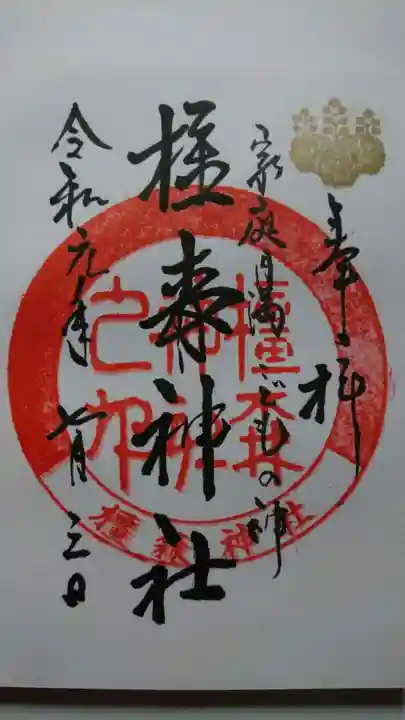 奉拝
家庭円満こどもの神
橿森神社
令和元年七月三日
橿森神社之印
橿森神社